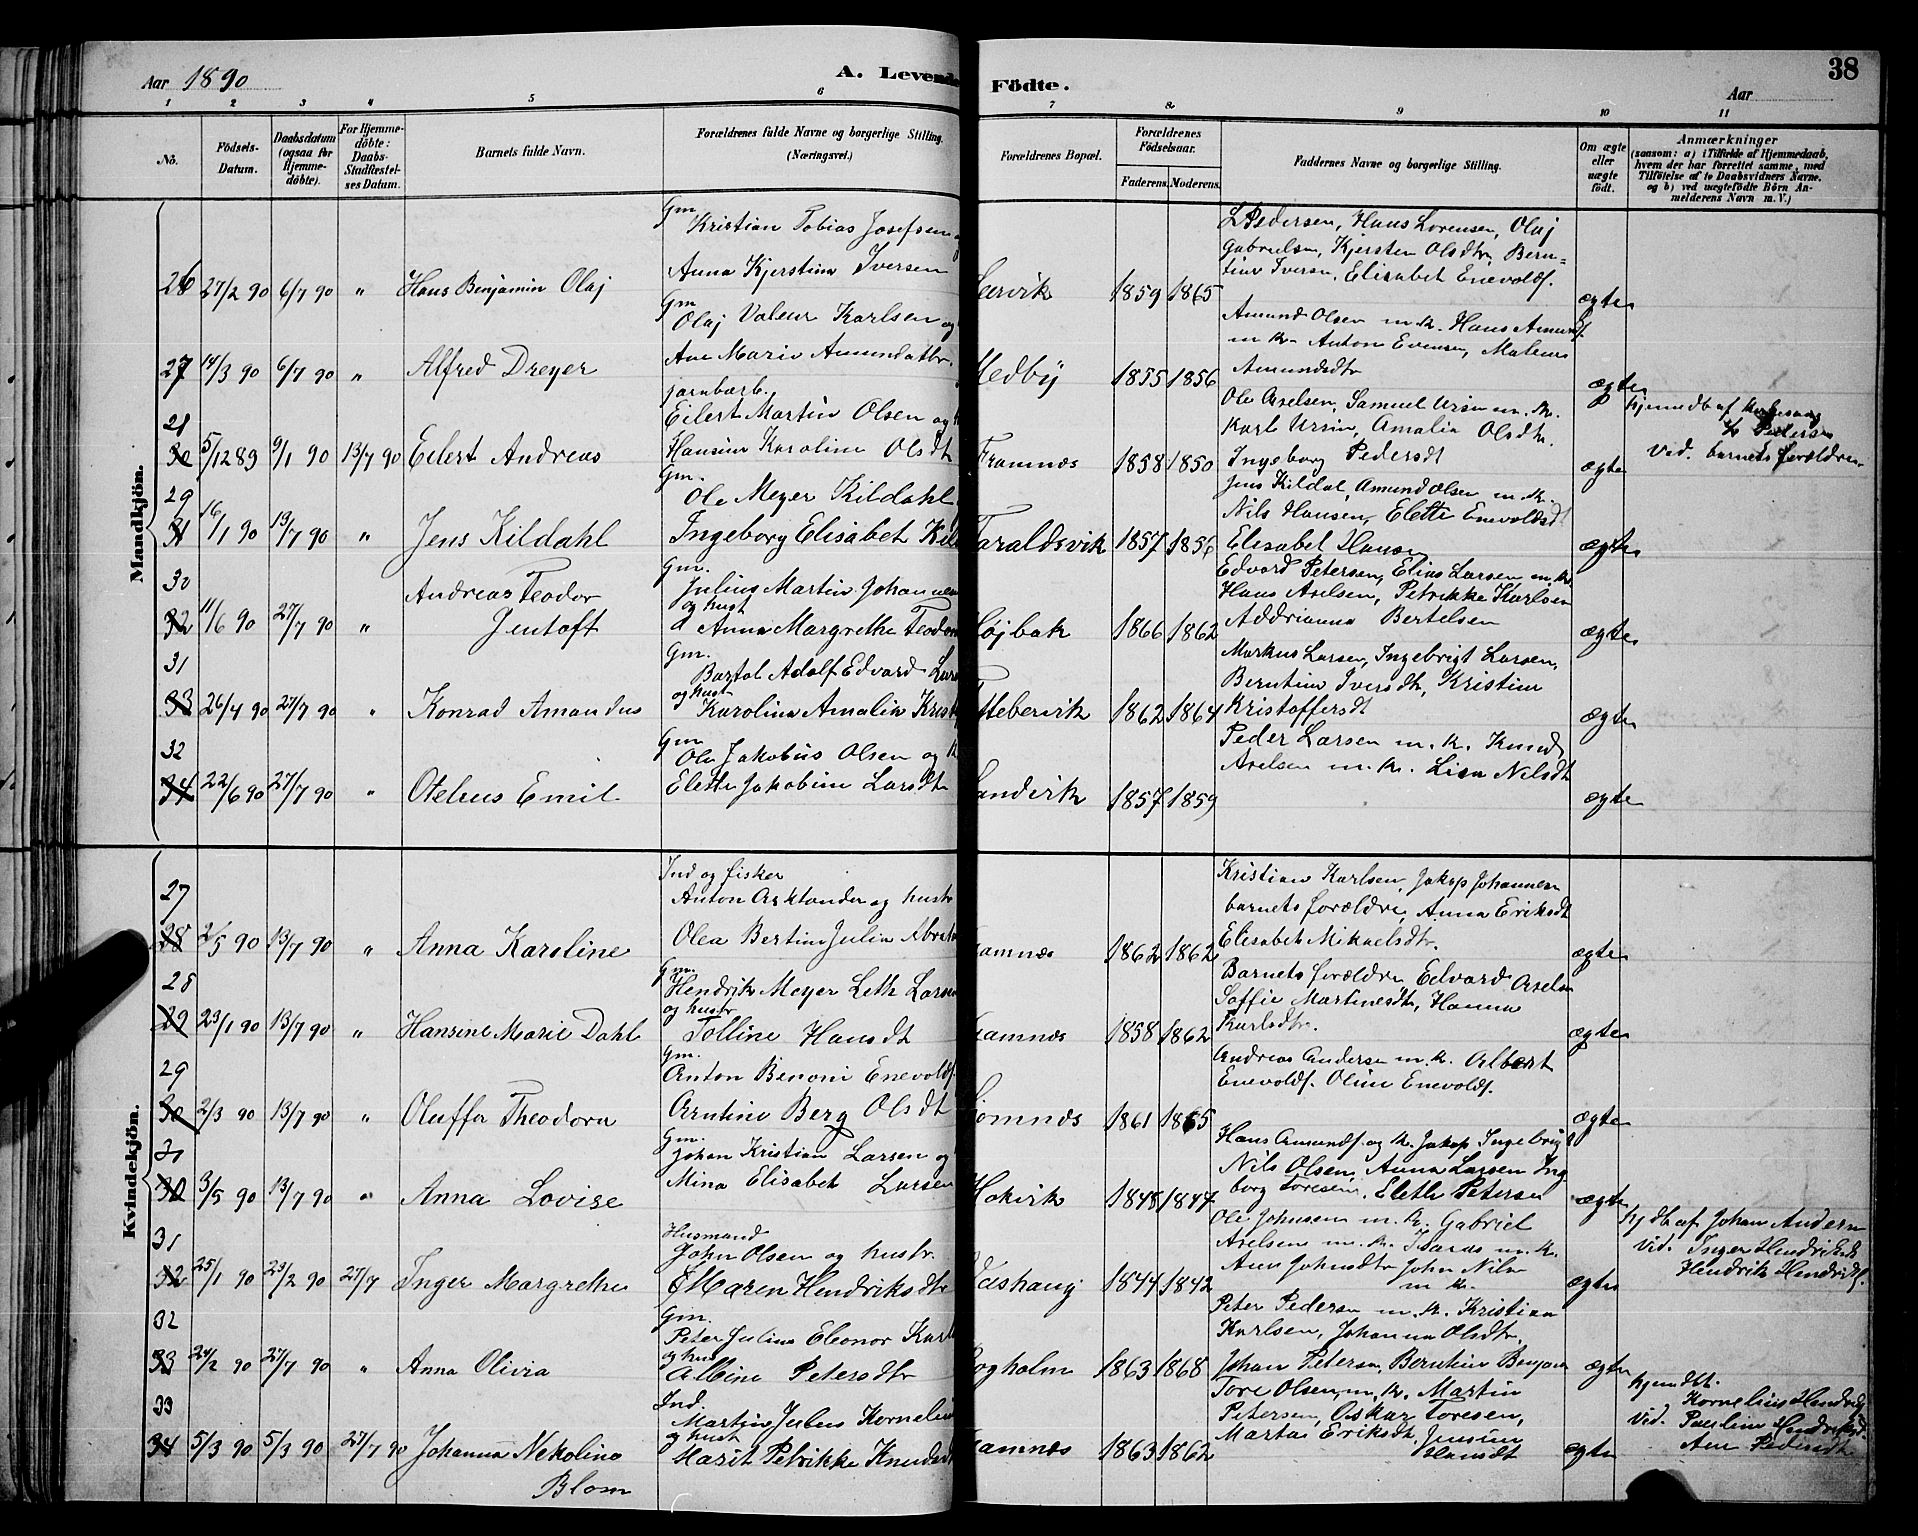 Aar 1890
A. Levende
Födte.
Aar
38
1 2 3 4 5 6 7 8 9 10 11
No.
Födsels-
Datum.
Daabsdatum
(ogsaa for
Hjemme-
döbte).
For Hjemme-
döbte:
Daabs-
Stadfæstel-
ses Datum.
Barnets fulde Navn.
Forældrenes fulde Navne og borgerlige Stilling.
(Næringsvei.)
Forældrenes Bopæl.
Forældrenes
Födselsaar.
Faderens. Moderens.
Faddernes Navne og borgerlige Stilling.
Om ægte
eller
uægte
födt.
Anmærkninger
(saasom: a) i Tilfælde af Hjemmedaab,
hvem der har forrettet samme, med
Tilföielse af to Daabsvidners Navne.
og b) ved uægtefödte Börn An-
melderens Navn m. V.)
Mandkjön.
26 27/2 90 6/7 90 " Hans Benjamin Olaj
Gm
Kristian Tobias Josefsen
Anna Kjerstina Iversen
1859 1865
Pedersen, Hans Lorensen, Olaj
Gabrielsen, Kjersten Olsdtr, Bern-
tine Iversen, Elisabet Enevoldf.
ægte
27 14/3 90 6/7 90 " Alfred Dreyer
Gm
Olaj Valeur Karlsen og
Ane Marie Amundsdtr.
Medby 1855 1856
Amund Olsen m. k. Hans Amundf.
m k. Anton Evensen,
Amundsdtr
ægte
28
30 5/12 89 9/1 90 13/7 90 Eilert Andreas
jarnbarb.
Eilert Martin Olsen og
Hansine Karoline Olsdt
Framnæs 1858 1850
Ole Axelsen, Samuel Ursin m. k.
Karl Ursin, Amalia Olsdtr.
Ingeborg Pedersdt
ægte
Hjemmedb af
Pedersen
Vid. barnets forældre
29
31 16/1 90 19/7 90 " Jens Kildahl
Gm.
Ole Meyer Kildahl
Ingeborg Elisabet Kil
Taraldsvik 1857 1856
Jens Kildal, Amund Olsen m. k.
Nils Hansen, Elette Enevoldsdt
Elisabet Hansen
ægte
30
32 11/6 90 27/7 90 " Andreas Teodor
Jentoft
Gm.
Julius Martin Johannes
og hust
Anna Margrethe Teodor
Højbak 1866 1862
Edvard Petersen, Elias Larsen m. k.
Hans Axelsen, Petrikke Karlsen
Addrianna Bertelsen
ægte
31
33 26/4 90 27/7 90 " Konrad Amandus
Gm.
Bartol Adolf Edvard Lars
og hust
Karolina Amalia Krist
1862 1864
Markus Larsen, Ingebrigt Larsen,
Berntine Iversdtr, Kristine
Kristoffersdt
ægte
32
34 22/6 90 27/7 90 " Otelius Emil
Gm
Ole Jakobus Olsen og
Elette Jakobine Larsdtr
Sandvik 1857 1859
Peder Larsen m. k. Knud
Axelsen m. k. Lisa Nilsdt
ægte
Kvindekjön.
27
28 2/5 90 13/7 90 " Anna Karoline
Ind og fisker
Anton Arktander og hustr
Olea Bertine Julia Abrah
1862 1862
Kristian Karlsen, Jakop Johannsen
barnets forældre, Anna Eriksdt
Elisabet Mikaelsdtr.
ægte
28
29 23/1 90 13/7 90 " Hansine Marie Dahl
Gm.
Hendrik Meyer Leth Larsen
og hustr
Tolline Hansdt
1858 1862
Barnets forældre, Edvard Axelsen
Soffie Martinesdt, Hanna
Karlsdtr.
ægte
29
30 2/3 90 13/7 90 " Oluffa Theodora
Gm.
Anton Benoni Enevoldf.
Arntine Berg Olsdt
1861 1865
Andreas Andersen m. k. Albert
Enevoldf. Oline Enevoldf.
ægte
31
30 3/5 90 13/7 90 " Anna Lovise
Gm.
Johan Kristian Larsen og
Mina Elisabet Larsen
1848 1847
Hans Amundf. og k. Jakop Ingebrigt
Nils Olsen, Anna Larsen Ing
borg Toresen, Elette Petersen
ægte
31
32 25/1 90 23/2 90 27/7 Inger Margrethe
Husmand
John Olsen og hustr.
Maren Hendriksdtr
1844 1842
Ole Johnsen m. k. Gabriel
Axelsen m. k. m. k.
Ane Johnsdtr John Nils
m k.
ægte
Hj db af Johan Andersn
Vid. Inger Hendriksd
Hendrik Hendrikf.
32
33 24/2 90 27/7 90 " Anna Olivia
Gm.
Peter Julius Eleonor Karl
og hus
Albine Petersdtr
1863 1868
Peter Pedersen m. k. Kristian
Karlsen, Johanna Olsdtr.
Johan Petersen, Berntine Benjam
ægte
33
34 5/3 90 5/3 90 27/7 90 Johanna Nekoline
Blom
Ind.
Martin Julius Kornelius
og hust
Marit Petrikke Knudsdt
1863 1862
Tore Olsen, m. k. Martin
Petersen, Oskar Toresen,
Martae Eriksdt, Jensine
Hansdt
ægte
Hjemdbt.
Kornelius Hendrik
Vid. Pauline Hendriksd.
Ane Pedersdt